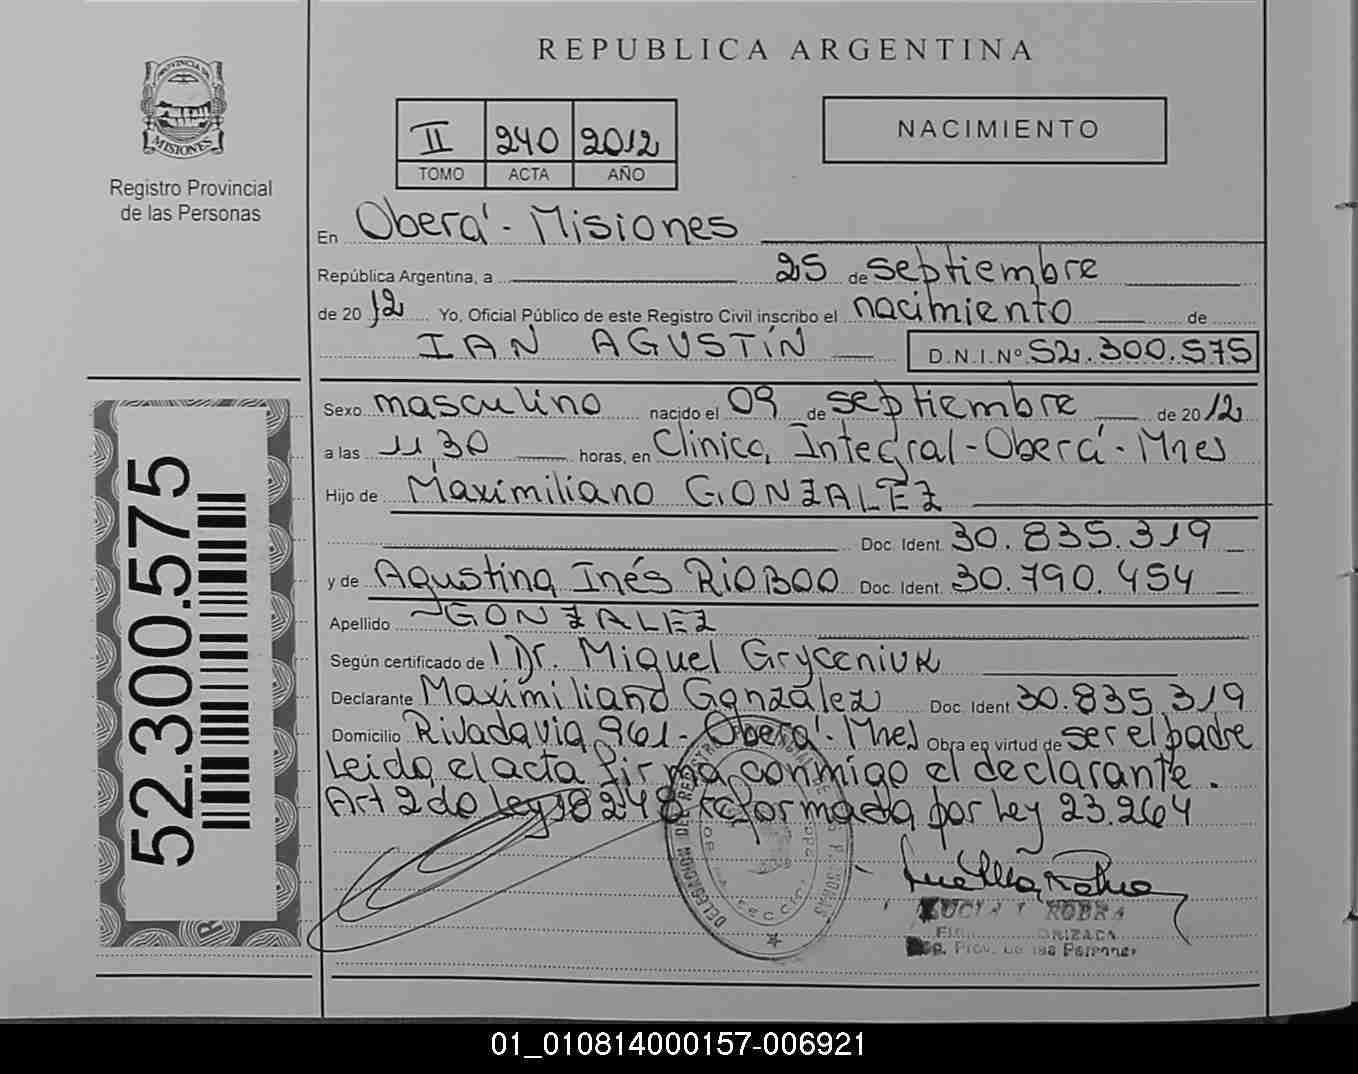 REPUBLICA ARGENTINA
PROVINCIA DE
MISIONES
Registro Provincial
de las Personas
II 240 2012
TOMO ACTA AÑO
NACIMIENTO
En Oberá - Misiones
República Argentina, a 25 de septiembre
de 2012 Yo, Oficial Público de este Registro Civil inscribo el nacimiento de
IAN AGUSTÍN D.N.I.Nº 52.300.575
Sexo masculino nacido el 09 de septiembre de 2012
a las 11 30 horas, en Clinica Integral - Oberá - Mnes
Hijo de Maximiliano GONZALEZ
Doc. Ident. 30.835.319
y de Agustina Inés RIOBOO Doc. Ident. 30.790.454
Apellido GONZALEZ
Según certificado de Dr. Miguel Gryceniuk
Declarante Maximiliano González Doc. Ident. 30.835.319
Domicilio Rivadavia 961 - Oberá - Mnes Obra en virtud de ser el padre
Leida el acta firma conmigo el declarante.
Art 2 de ley 18248 reformada por ley 23.264
52.300.575
DELEGACION DEL REGISTRO
LUCIA ROBRA
Reg. Prov. de las Personas
01_010814000157-006921